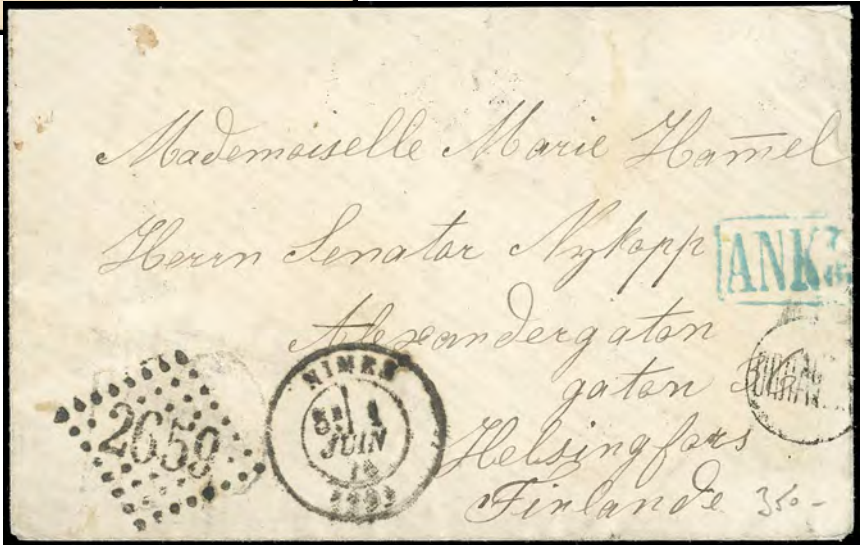 Mademoiselle Marie Ham̄el
Herrn Senator Nykopp
ANK
Alexandergatan
gatan
Helsingfors
Finlande
350-
2659
NIMES
1
JUIN